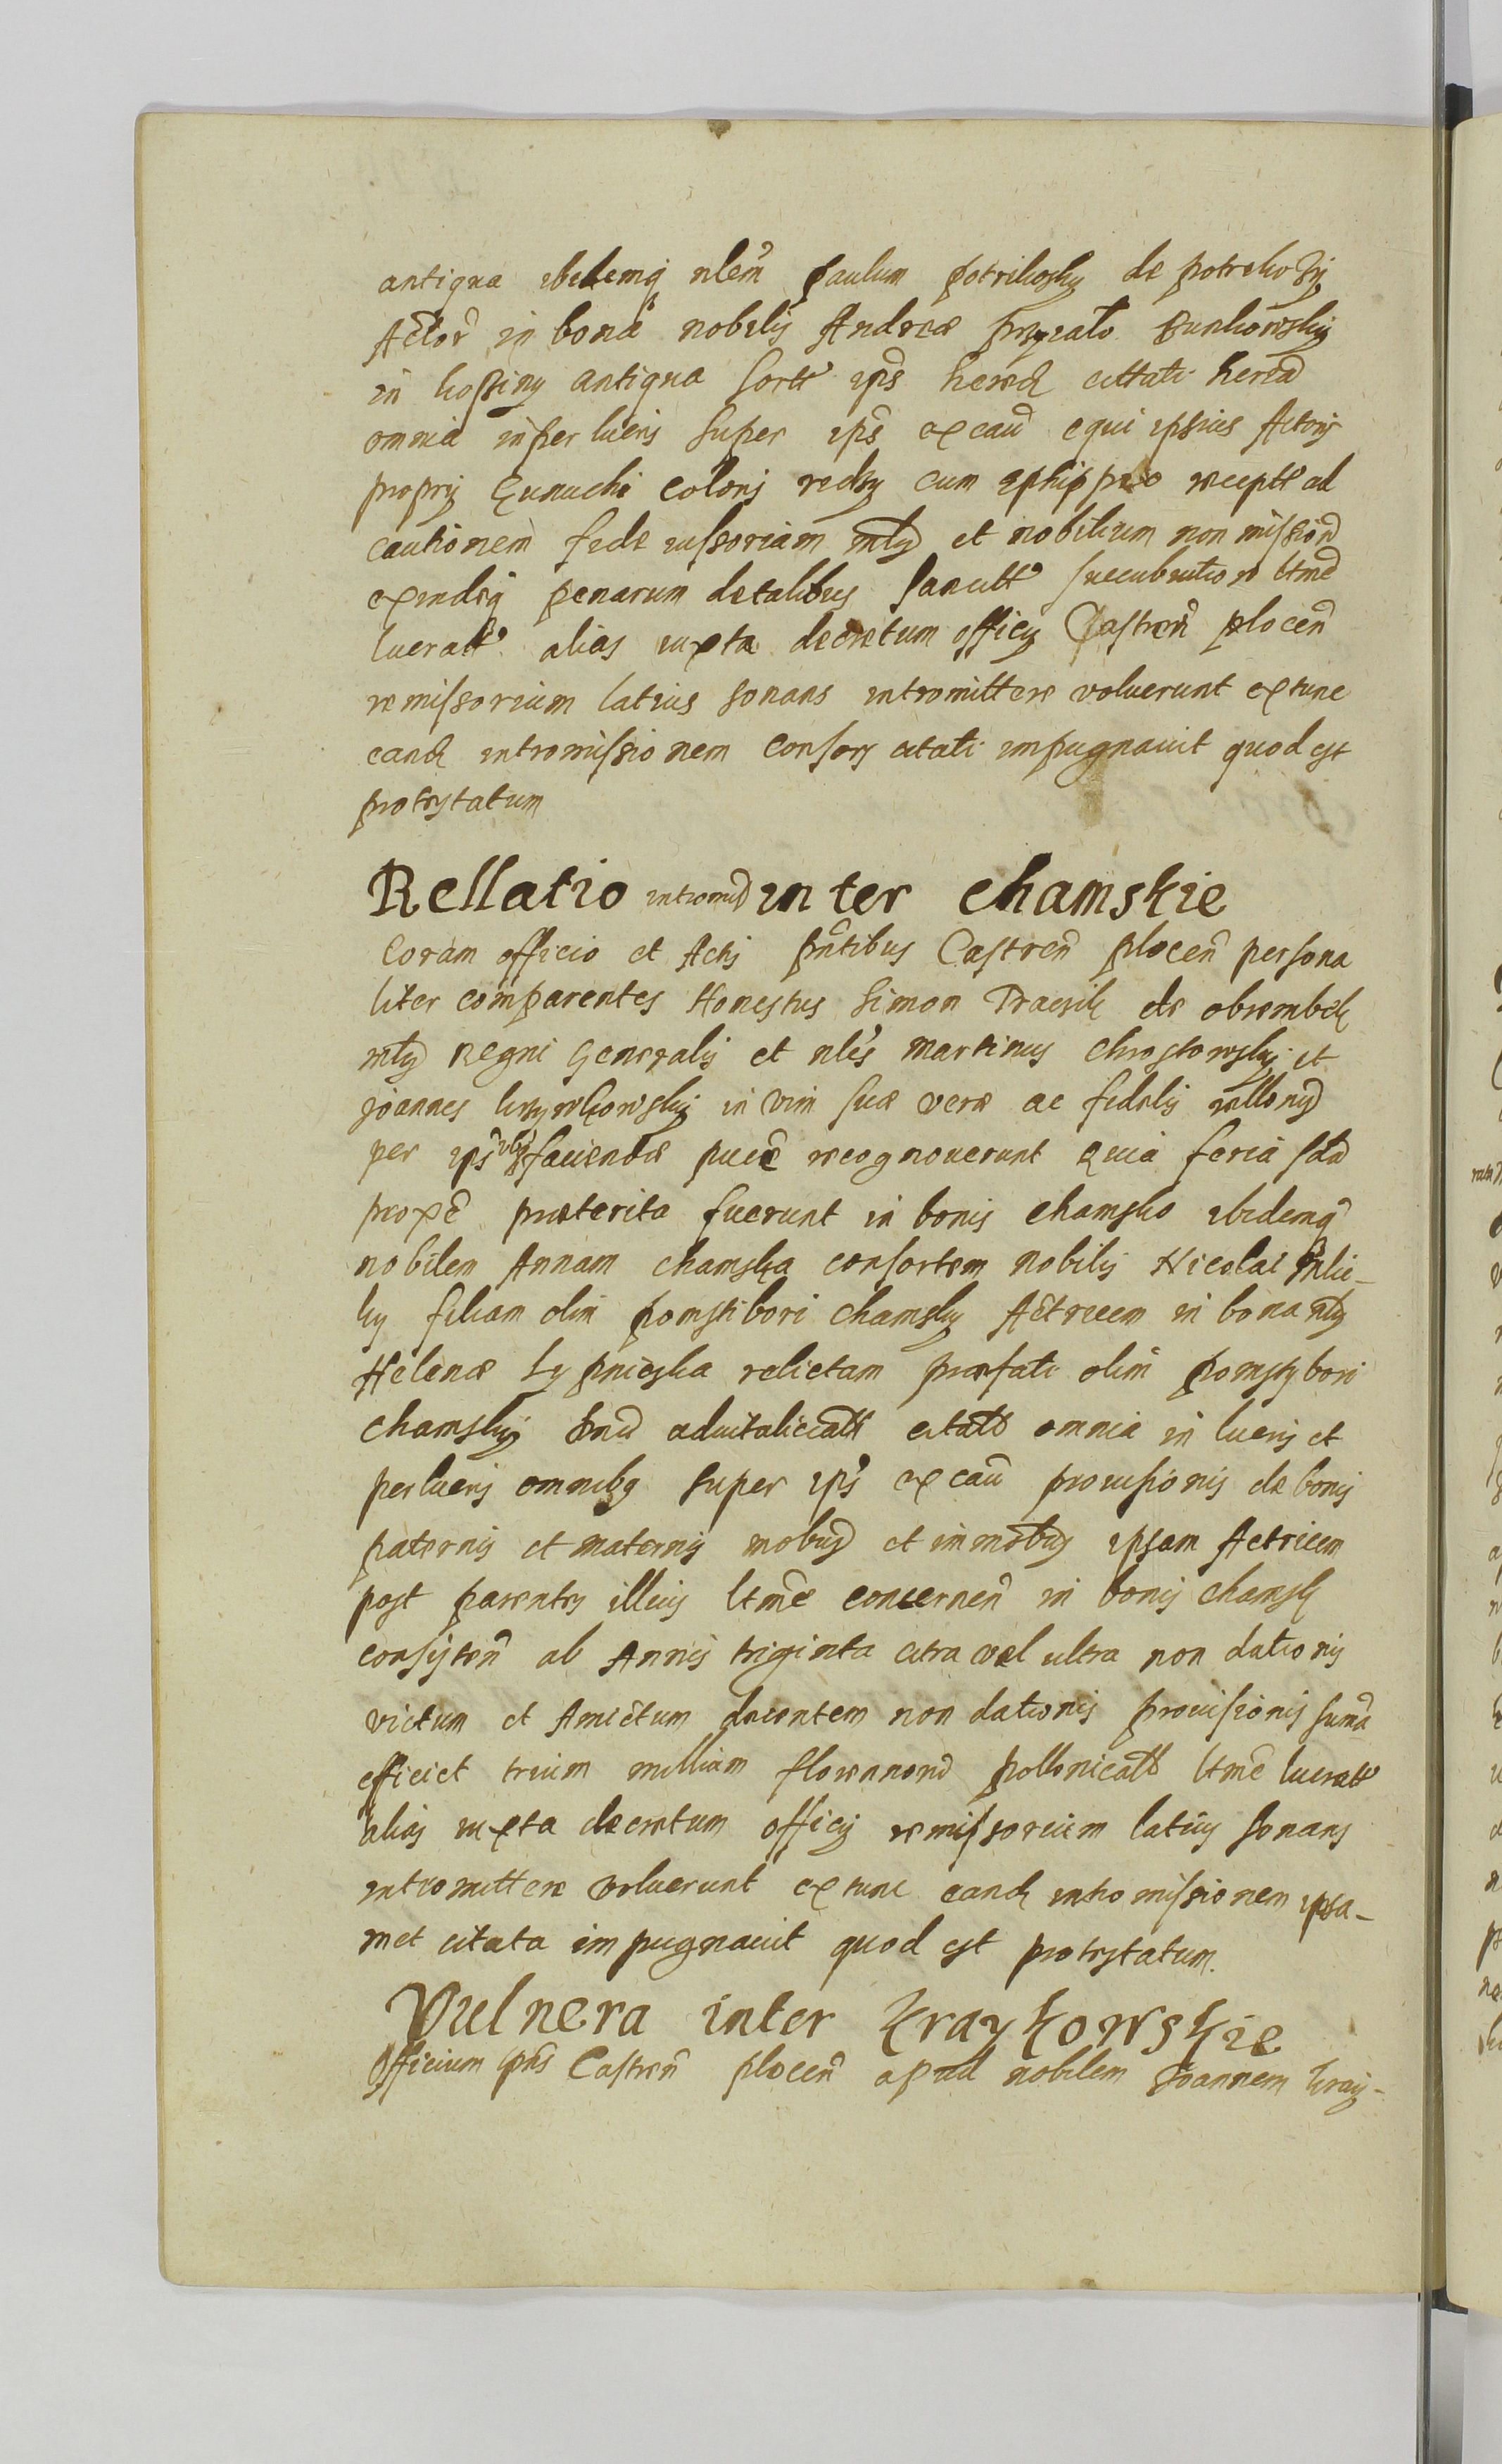 antiqua ibidemq nlem paulum potrikosky de potrikozy
Actor in bona nobilis Andreæ
in antiqua sortt ips hered cittati hered
omnia in perlucris super ips ex cau equi ipsius Actoris
proprij Eunuchi coloris cum ephippio receptt ad
cautionem fide iussoriam mtlis et nobilium non mission
exindeq penarum detalibus succubuition ltme
lucratt alias iuxta decretum officij Castren plocen
remissorium latius sonans intromittere voluerunt extunc
eand intromissionem consors citati impugnauit quod est
protestatum
Rellatio intromis inter chamskie
Coram officio et Actis pntibus Castren plocen persona
liter comparentes Honestus Simon de obremb
mtlis Regni Generalis et nles Martinus chrostowsky et
joannes in vim suæ veræ ac fidelis rellonis
per ips faciendæ recognouerunt quia feria
proxe præterita fuerunt in bonis chamsko ibidemq
nobilem Annam chamska consortem nobilis Nicolai
ky filiam olim pomstibori chamsky Actricem in bona
Helenæ Lypnieska relictam præfati olim pomstybori
chamsky aduitalicatt citatt omnia in lucris et
perlucris omnibq super ips ex cau prouisionis de bonis
paternis et maternis mobus et immobus ipsam Actricem
post parentes illius ltme concernen in bonis chamsk
consisten ab Annis triginta citra vel ultra non dationis
victum et Amictum decentem non dationis prouisionis suma
efficiet trium millium florenorum pollonicatt ltme lucratt
alias iuxta decretum officij remissorium latius sonans
intromittere voluerunt extunc eand intromissionem ipsa-
met citata impugnauit quod est protestatum.
Vulnera inter kraykowskie
Officium pns Castren plocen apud nobilem Joannem kray-